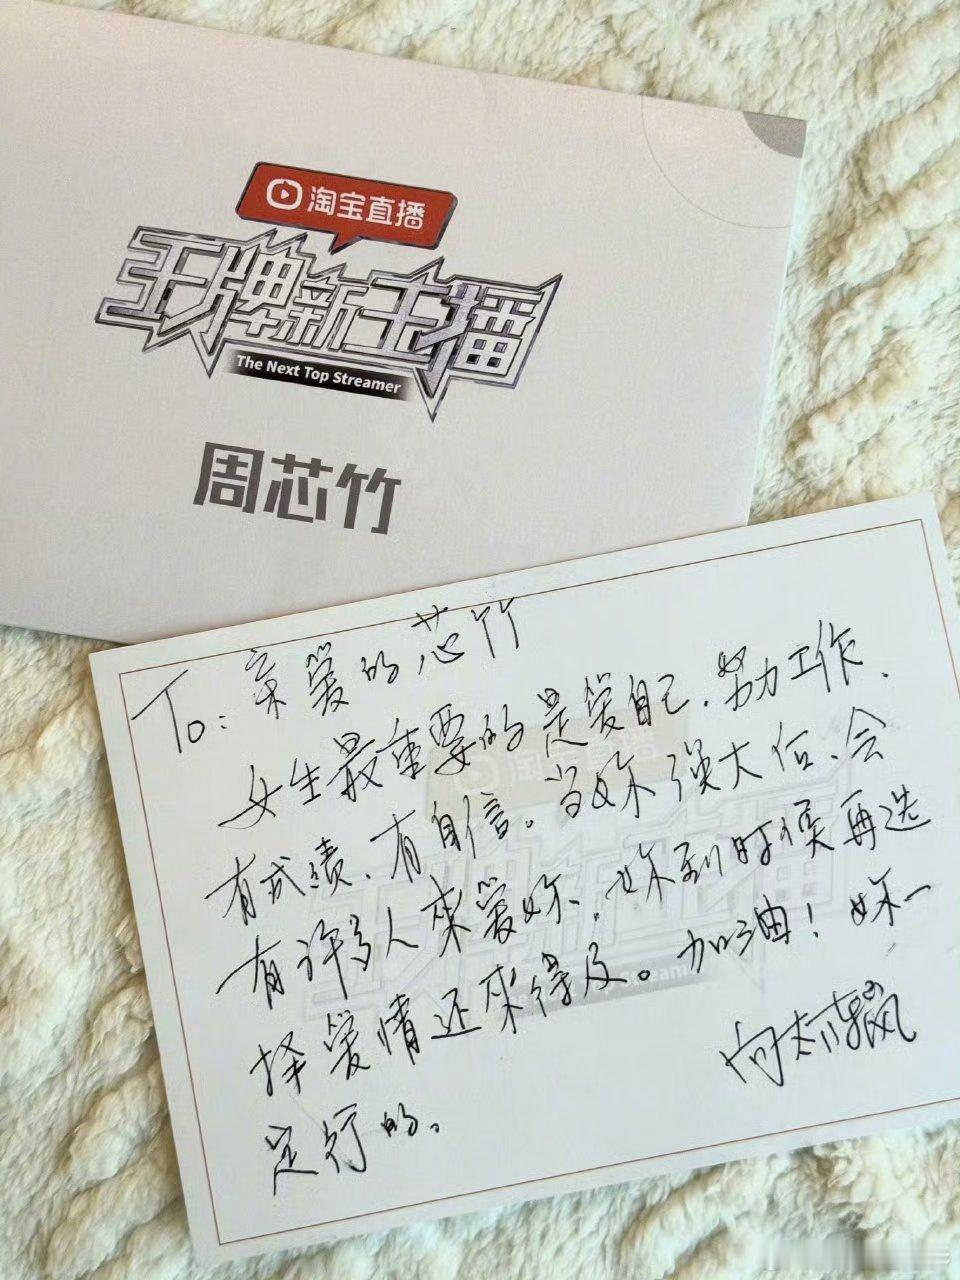 淘宝直播
王牌新主播
The Next Top Streamer
周芯竹
To: 亲爱的芯竹
女生最重要的是爱自己.努力工作、
有成绩、有自信。当妳强大后、会
有许多人来爱妳.妳到时候再选
择爱情还来得及。加油！妳一
定行的。
向太陈岚
淘宝直播
王牌新主播
The Next Top Streamer